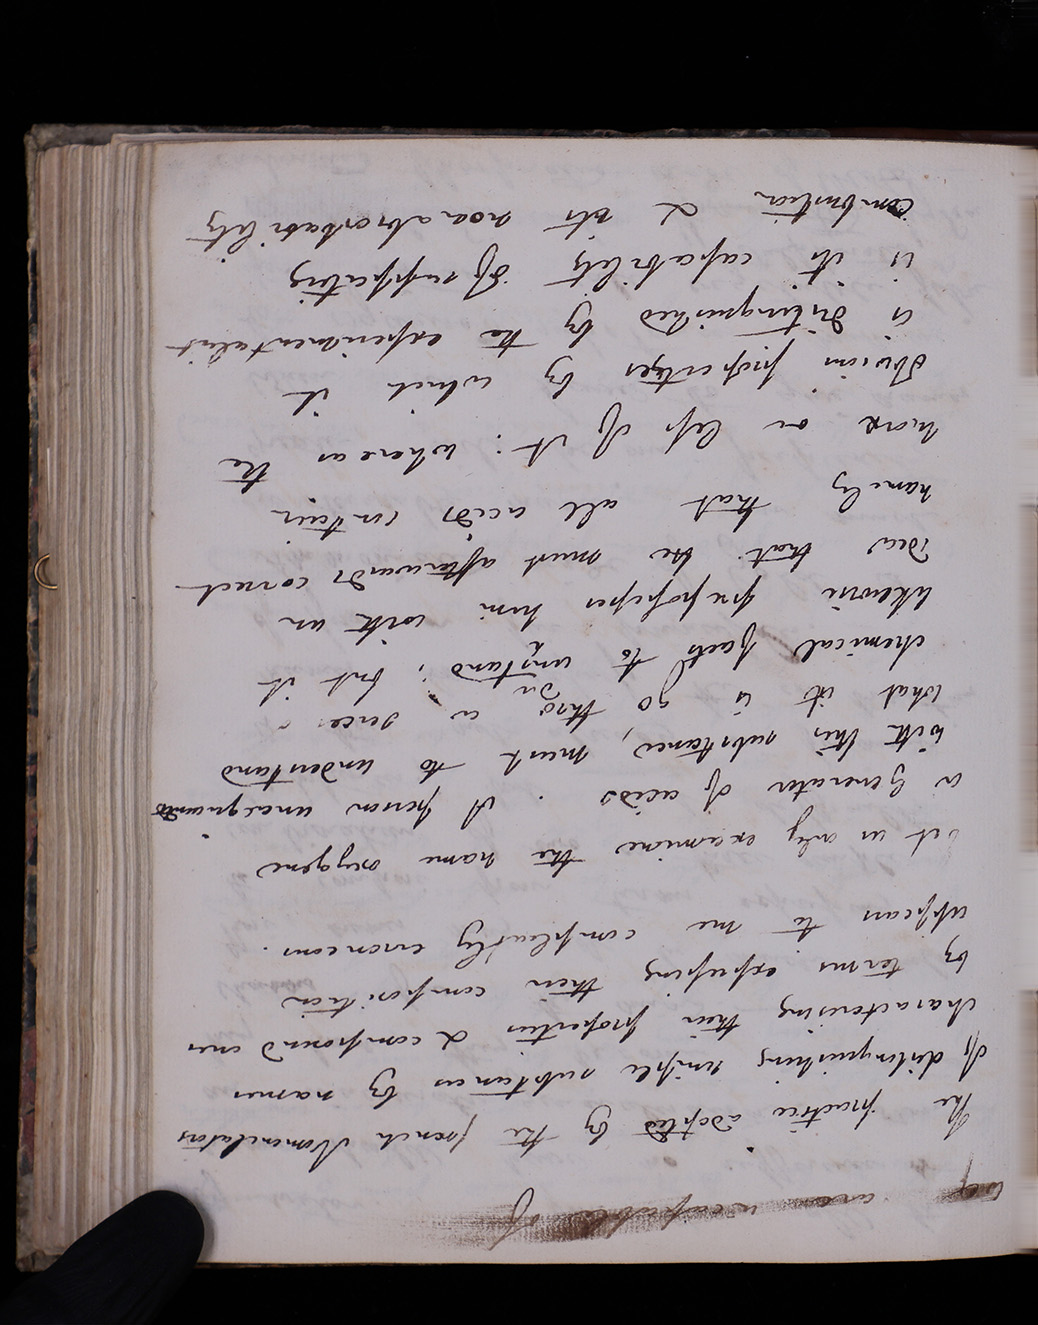 was incapable of
The practice adopted by the french Nomenclators
of distinguishing simple substances by names
characterising their properties & compound ones
by terms expressing their composition
appears to me compleatly erroneous.
Let us only examine the name oxygene
a generator of acids. A person unacquainted
with this substance, must to understand
what it is go thro a series
chemical facts to unstand; but it
der
likewise prepossesses him with an
idea that he must afterwards correct
namely that all acids contain
more or less of it: whereas the
obvious propertyes by which it
is distinguished by the experimentalist
is its capability of supporting
combustion & its nonabsorbability